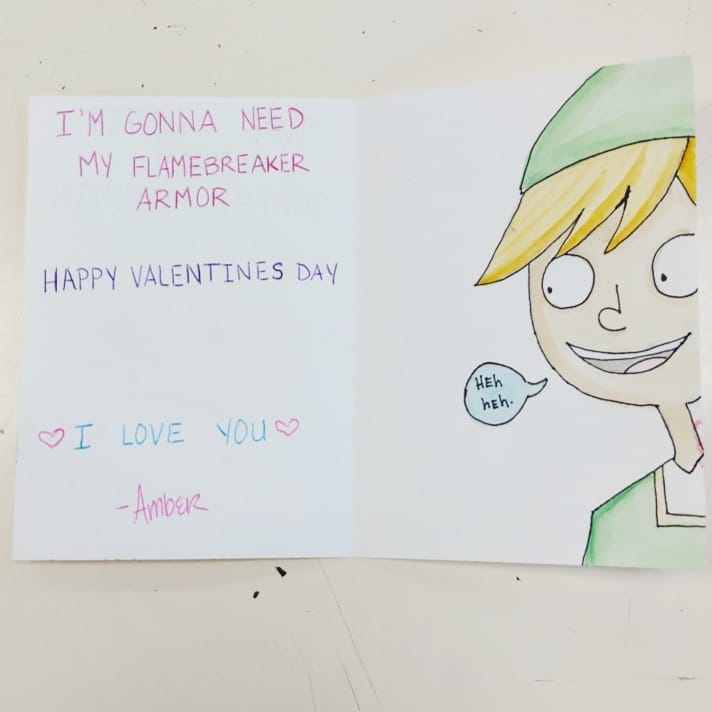 I'M GONNA NEED
MY FLAMEBREAKER
ARMOR
HAPPY VALENTINES DAY
I LOVE YOU
-AMBER
HEh
hEh.